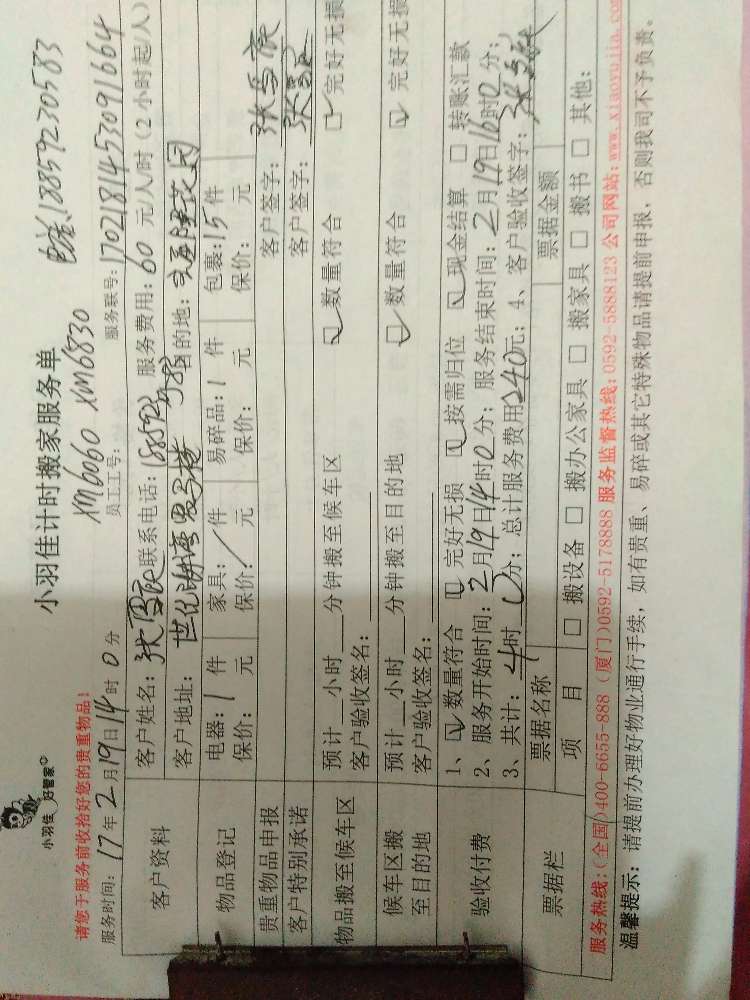 小羽佳 好管家
小羽佳计时搬家服务单
电话:18859230583
请您于服务前收拾好您的贵重物品!
XM6060 XM6830
服务时间: 17年2月19日14时0分 员工工号: 服务联号: 1702181453091664
客户资料 客户姓名: 联系电话: 服务费用: 60 元/人/时 (2小时起/人)
客户地址: 目的地:
物品登记 电器: 1 件 家具: / 件 易碎品: 1 件 包裹: 15 件
保价: 元 保价: 元 保价: 元 保价: 元
贵重物品申报 客户签字:
客户特别承诺 客户签字:
物品搬至候车区 预计__小时__分钟搬至候车区 ☑ 数量符合 ☑ 完好无损
客户验收签名:
候车区搬至目的地 预计__小时__分钟搬至目的地 ☑ 数量符合 ☑ 完好无损
客户验收签名:
验收付费 1、☑ 数量符合 ☑ 完好无损 ☑ 按需归位 ☑ 现金结算 □ 转账汇款
2、服务开始时间: 2月19日14时0分; 服务结束时间: 2月19日16时0分;
3、共计: 4时0分; 总计服务费用240元; 4、客户验收签字:
票据栏 票据名称 票据金额
项目 □ 搬设备 □ 搬办公家具 □ 搬家具 □ 搬书 □ 其他:
服务热线:(全国)400-6655-888 (厦门)0592-5178888 服务监督热线:0592-5888123 公司网站:www.xiaoyujia.com
温馨提示: 请提前办理好物业通行手续, 如有贵重、易碎或其它特殊物品请提前申报, 否则我司不予负责。